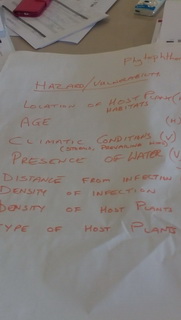 Phytophtho
HAZARD/VULNERABILITY
LOCATION OF HOST PLANT
HABITATS
AGE
CLIMATIC CONDITIONS (V)
PRESENCE OF WATER (V)
DISTANCE FROM INFECTION
DENSITY OF INFECTION
DENSITY OF HOST PLANTS
TYPE OF HOST PLANTS